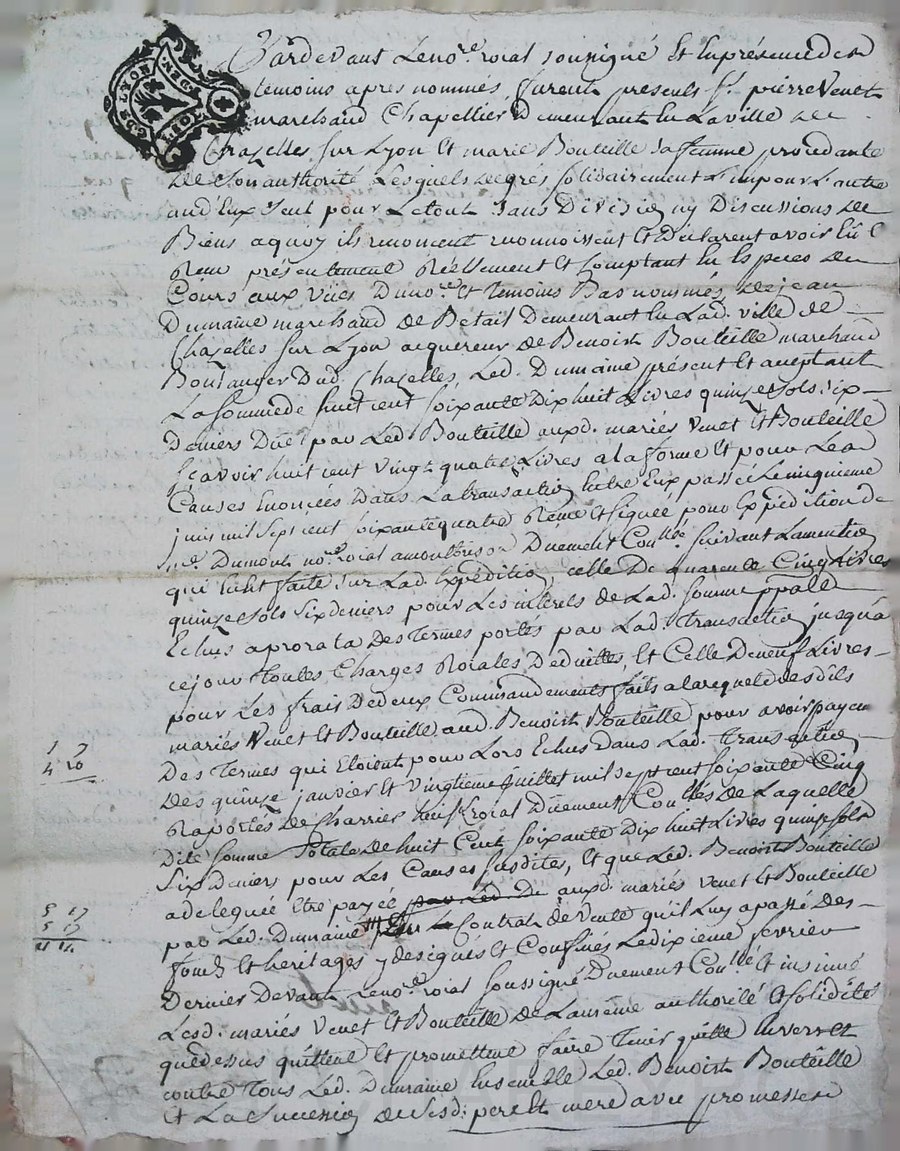 Pardevant Le no.re roial soussigné Et En présence des
témoins apres nommés, furent présents s.r pierre Venet
marchand Chapellier Demeurant En La ville de
Chazelles sur Lyon Et marie Bouteille sa femme procedante
De Son authorité, Lesquels De gré solidairement L'un pour L'autre
and'Eux Seul pour Le tout sans Division ny Discussions De
Biens aquoy ils renoncent reconnoissent Et Déclarent avoir Eû E
Reçu présentement Réellement Et Comptant En Especes du
Cours aux Vües Du no.re Et temoins Bas nommés, de jean
Dumaine marchand De Bétail Demeurant En Lad. ville de
Chazelles sur Lyon acquereur de Benoist Bouteille marchand
Boulanger Dud. Chazelles, Led. Dumaine présent Et aceptant
La somme de huit cent soixante Dix huit Livres quinze sols six
Deniers Düe par Led. Bouteille auxd. mariés Venet Et Bouteille
sçavoir huit cent vingt quatre Livres a la forme Et pour Les
Causes Enoncées Dans La transaction Entre Eux passée Le cinquieme
juin mil sept cent soixante quatre Reçue Et signée pour Expédition de
M.e Dumont no.re roial a montbrison Duement Con.llée suivant La mention
qui En Est faite sur Lad. Expédition, celle De quarente Cinq Livres
quinze sols six deniers pour Les interets de Lad. somme ppalle
Echus a prorata Des termes portés par Lad. transaction jusqu'a
ce jour toutes Charges Roiales Deduittes, Et Celle De neuf Livres
pour Les frais De deux Commandements faits a la requete desdits
mariés Venet Et Bouteille aud. Benoist Bouteille pour avoir payem
Des termes qui Etoient pour Lors Echus Dans Lad. transaction
Des quinze janvier Et vingtieme juillet mil sept cent soixante Cinq
Raportés De Charrier roial Duement Con.llés De Laquelle
Dite somme totale De huit Cent soixante Dix huit Livres quinze sols
Six Deniers pour Les Causes susdites, Et que Led. Benoist Bouteille
a deleguée Etre payée par Led. Du auxd. mariés Venet Et Bouteille
par Led. Dumaine Contrat de vente qu'il Luy a passé des
fonds Et heritages y designés Et Confinés Le dixieme fevrier
Dernier Devant Le no.re roial soussigné Duement Con.llé Et insinué
Lesd. mariés Venet Et Bouteille De La meme authorité Et solidité
que dessus quittent Et promettent faire tenir quitte Envers Et
contre tous Led. Dumaine Ensemble Led. Benoist Bouteille
Et La Succession de sesd. pere Et mere avec promesse
1 7
4 10
5 17
5 17
11 14